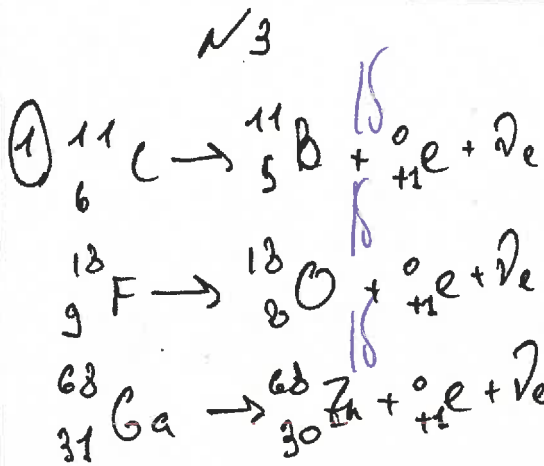 №3
1б 1б 1б
① ¹¹₆C → ¹¹₅B + ⁰₊₁e + νₑ
¹⁸₉F → ¹⁸₈O + ⁰₊₁e + νₑ
⁶⁸₃₁Ga → ⁶⁸₃₀Zn + ⁰₊₁e + νₑ